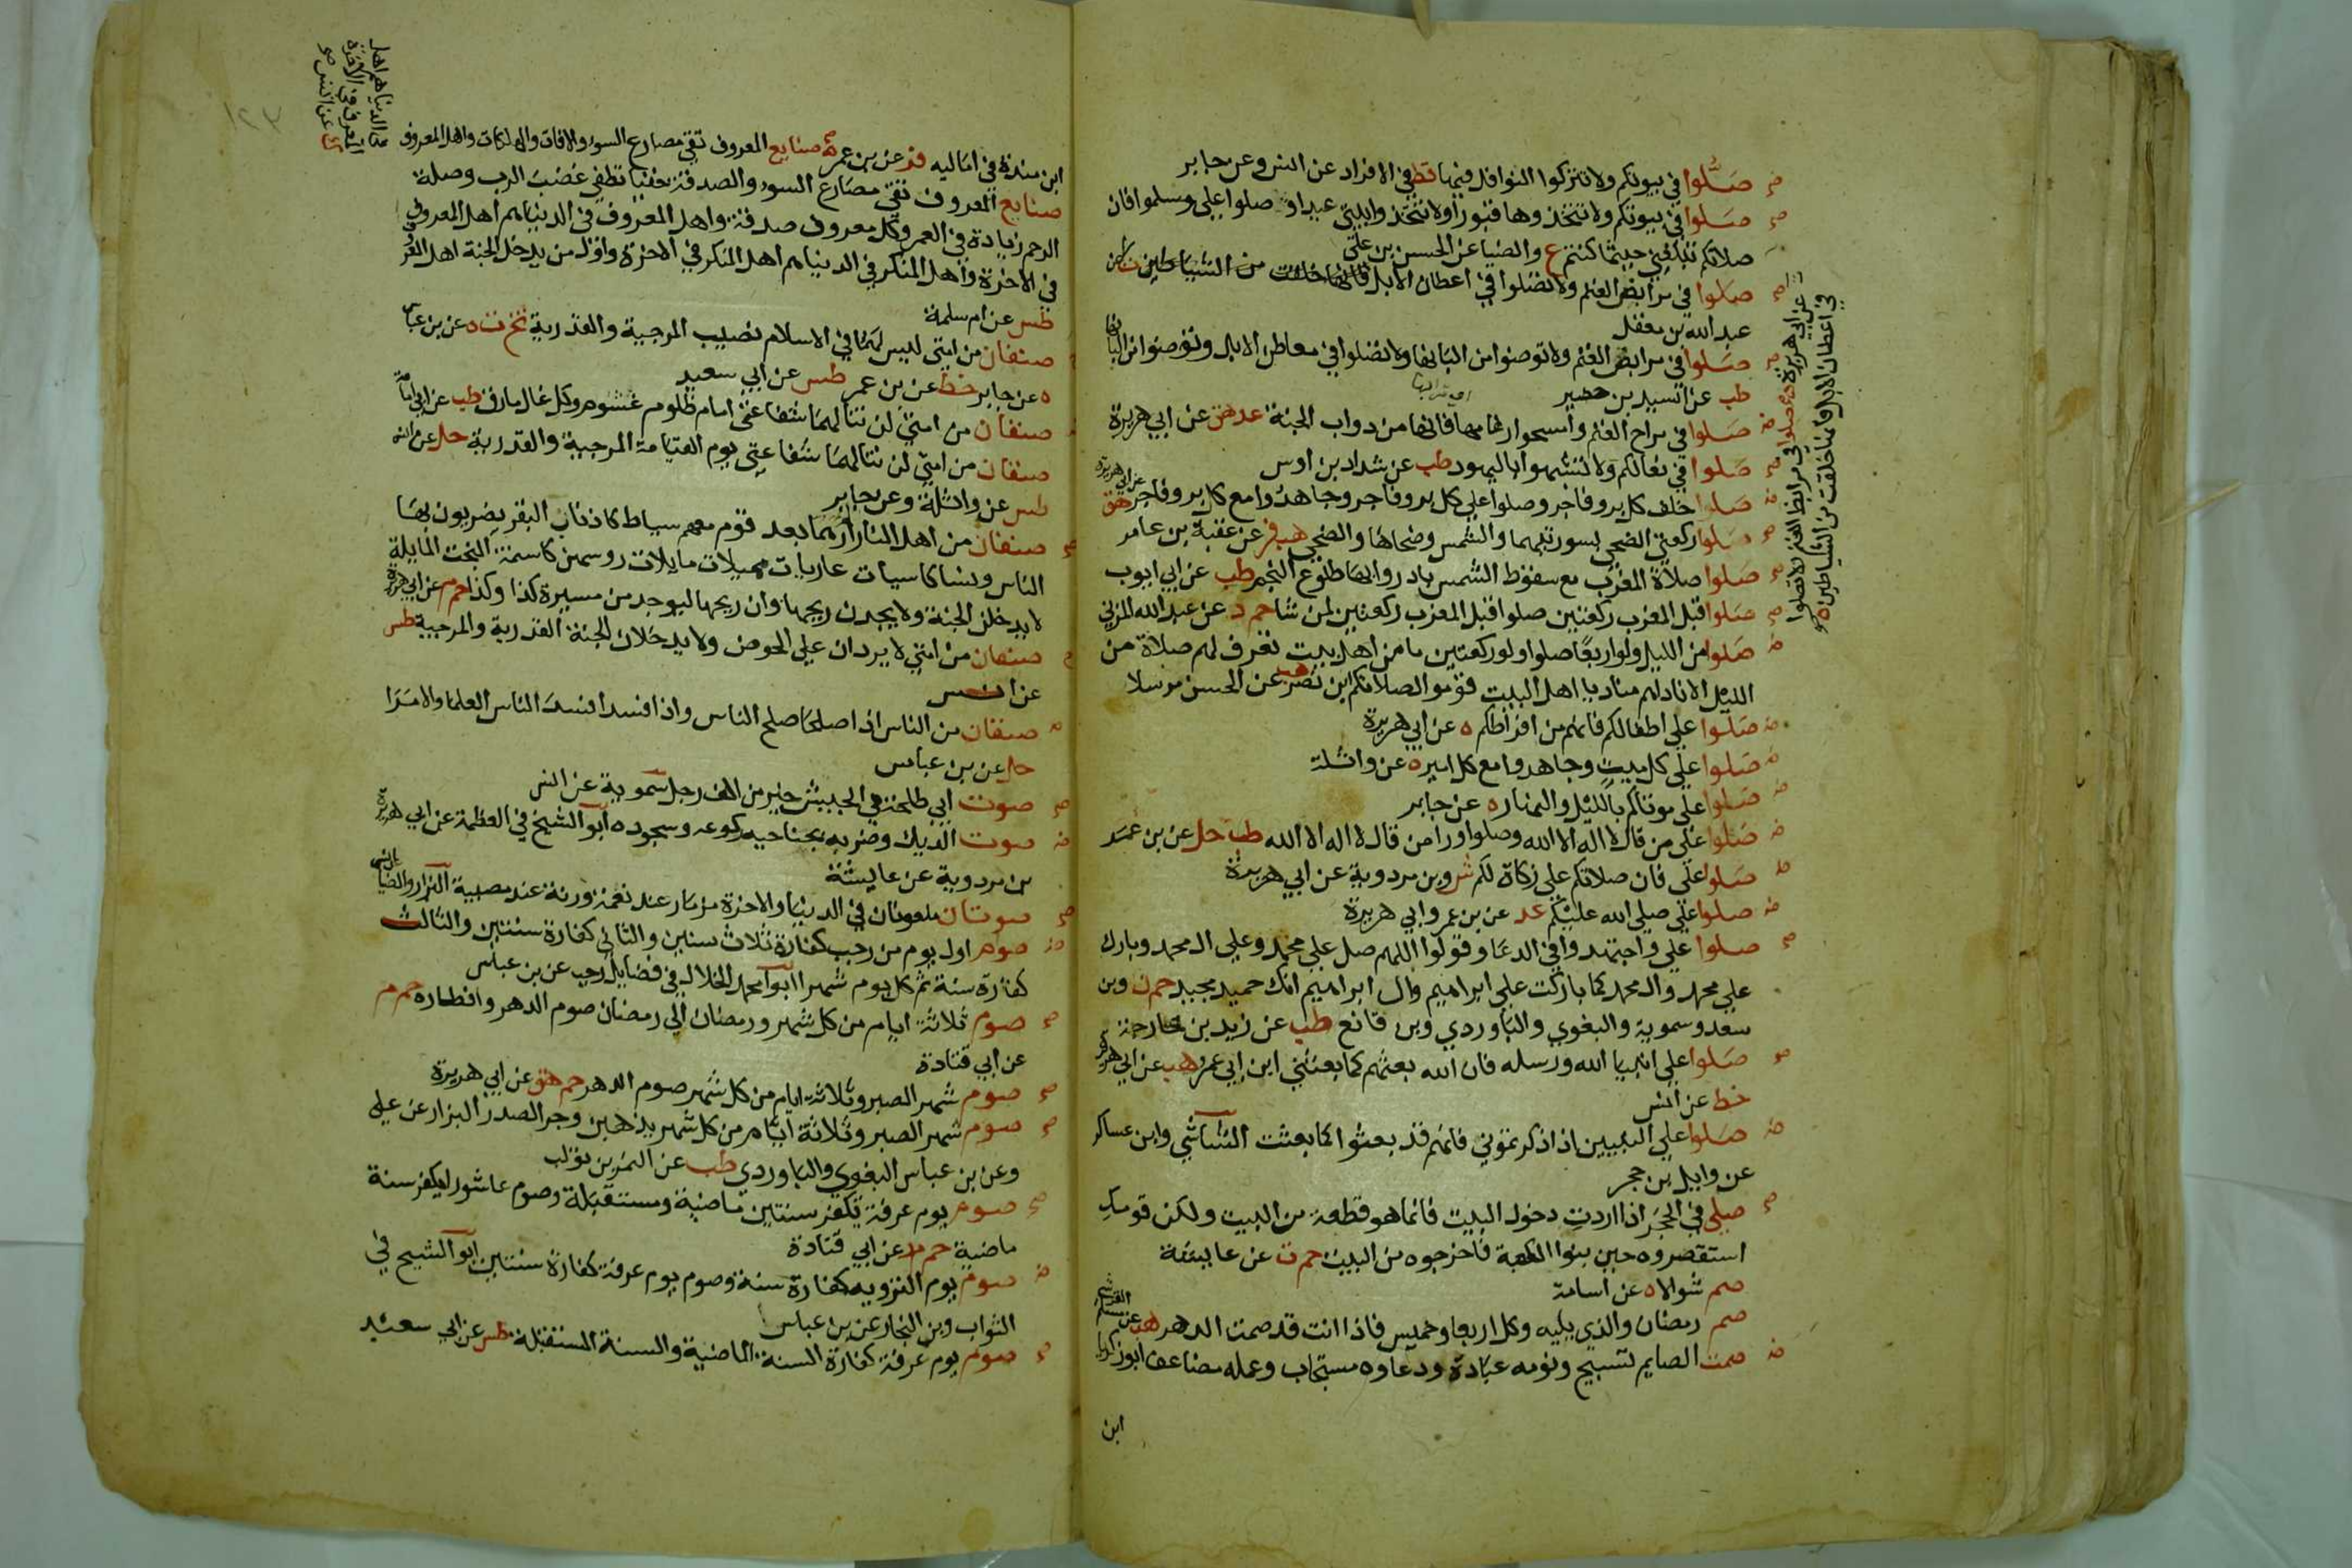 صلوا في بيوتكم ولا تتركوا النوافل فيها قط في الافراد عن انس وعن جابر
صلوا في بيوتكم ولا تتخذوها قبورا ولا تتخذوا بيتي عيدا وصلوا علي وسلموا فان
صلاتكم تبلغني حيثما كنتم ع والضيا عن الحسن بن علي
صلوا في مرابض الغنم ولا تصلوا في اعطان الابل فانها خلقت من الشياطين
عبد الله بن مغفل
صلوا في مرابض الغنم ولا توضوا من البانها ولا تصلوا في معاطن الابل وتوضوا من البانها
طب عن اسيد بن حضير
صلوا في مراح الغنم وامسحوا رغامها فانها من دواب الجنة عد هق عن ابي هريرة
صلوا في نعالكم ولا تشبهوا باليهود طب عن شداد بن اوس
صلوا خلف كل بر وفاجر وصلوا علي كل بر وفاجر وجاهدوا مع كل بر وفاجر هق عن ابي هريرة
صلوا ركعتي الضحي بسورتيهما والشمس وضحاها والضحي هب فر عن عقبة بن عامر
صلوا صلاة المغرب مع سقوط الشمس بادروا بها طلوع النجم طب عن ابي ايوب
صلوا قبل المغرب ركعتين صلوا قبل المغرب ركعتين لمن شا حم د عن عبد الله المزني
صلوا من الليل ولو اربعا صلوا ولو ركعتين ما من اهل بيت تعرف لهم صلاة من
الليل الا ناداهم مناد يا اهل البيت قوموا لصلاتكم ابن نصر هب عن الحسن مرسلا
صلوا علي اطفالكم فانهم من افراطكم ه عن ابي هريرة
صلوا علي كل ميت وجاهدوا مع كل امير ه عن واثلة
صلوا علي موتاكم بالليل والنهار ه عن جابر
صلوا علي من قال لا اله الا الله وصلوا ورا من قال لا اله الا الله طب حل عن بن عمر
صلوا علي فان صلاتكم علي زكاة لكم ش وبن مردوية عن ابي هريرة
صلوا علي صلي الله عليكم عد عن بن عمر وابي هريرة
صلوا علي واجتهدوا في الدعا وقولوا اللهم صل علي محمد وعلي ال محمد وبارك
علي محمد وال محمد كما باركت علي ابراهيم وال ابراهيم انك حميد مجيد حم ن وبن
سعد وسموية والبغوي والباوردي وبن قانع طب عن زيد بن خارجة
صلوا علي انبيا الله ورسله فان الله بعثهم كما بعثني ابن ابي عمر هب عن ابي هريرة
خط عن انس
صلوا علي النبيين اذا ذكرتموني فانهم قد بعثوا كما بعثت الشاشي وابن عساكر
عن وايل بن حجر
صلي في الحجر اذا اردت دخول البيت فانما هو قطعة من البيت ولكن قومك
استقصروه حين بنوا الكعبة فاخرجوه من البيت حم ت عن عايشة
صم شوالا ه عن اسامة
صم رمضان والذي يليه وكل اربعا وخميس فاذا انت قد صمت الدهر هب عن مسلم القرشي
صمت الصايم تسبيح ونومه عبادة ودعاوه مستجاب وعمله مضاعف ابو زكريا
ابن
عن ابي هريرة ه صلوا في مرابض الغنم ولا تصلوا
في اعطان الابل فانها خلقت من الشياطين ه
ابن مندة في اماليه فر عن بن عمر صنايع المعروف تقي مصارع السوء والافات والهلكات واهل المعروف
في الدنيا هم اهل
المعروف في الاخرة
ك عن انس
صنايع المعروف تقي مصارع السوء والصدقة خفيا تطفي غضب الرب وصلة
الرحم زيادة في العمر وكل معروف صدقة واهل المعروف في الدنيا هم اهل المعروف
في الاخرة واهل المنكر في الدنيا هم اهل المنكر في الاخرة واول من يدخل الجنة اهل المعروف
طس عن ام سلمة
صنفان من امتي ليس لهما في الاسلام نصيب المرجية والقدرية تخ ت ه عن بن عباس
ه عن جابر خط عن بن عمر طس عن ابي سعيد
صنفان من امتي لن تنالهما شفاعتي امام ظلوم غشوم وكل غال مارق طب عن ابي امامة
صنفان من امتي لن تنالهما شفاعتي يوم القيامة المرجية والقدرية حل عن انس
طس عن واثلة وعن جابر
صنفان من اهل النار لم ارهما بعد قوم معهم سياط كاذناب البقر يضربون بها
الناس ونسا كاسيات عاريات مميلات مايلات روسهن كاسنمة البخت المايلة
لا يدخلن الجنة ولا يجدن ريحها وان ريحها ليوجد من مسيرة كذا وكذا حم م عن ابي هريرة
صنفان من امتي لا يردان علي الحوض ولا يدخلان الجنة القدرية والمرجية طس
عن انس
صنفان من الناس اذا صلحا صلح الناس واذا فسدا فسد الناس العلما والامرا
حل عن بن عباس
صوت ابي طلحة في الجيش خير من الف رجل سموية عن انس
صوت الديك وضربه بجناحيه ركوعه وسجوده ابو الشيخ في العظمة عن ابي هريرة
بن مردوية عن عايشة
صوتان ملعونان في الدنيا والاخرة مزمار عند نعمة ورنة عند مصيبة البزار والضيا عن انس
صوم اول يوم من رجب كفارة ثلاث سنين والثاني كفارة سنتين والثالث
كفارة سنة ثم كل يوم شهرا ابو محمد الخلال في فضايل رجب عن بن عباس
صوم ثلاثة ايام من كل شهر ورمضان الي رمضان صوم الدهر وافطاره حم م
عن ابي قتادة
صوم شهر الصبر وثلاثة ايام من كل شهر صوم الدهر حم هق عن ابي هريرة
صوم شهر الصبر وثلاثة ايام من كل شهر يذهبن وحر الصدر البزار عن علي
وعن بن عباس البغوي والباوردي طب عن النمر بن تولب
صوم يوم عرفة يكفر سنتين ماضية ومستقبلة وصوم عاشورا يكفر سنة
ماضية حم م د عن ابي قتادة
صوم يوم التروية كفارة سنة وصوم يوم عرفة كفارة سنتين ابو الشيخ في
الثواب وبن النجار عن بن عباس
صوم يوم عرفة كفارة السنة الماضية والسنة المستقبلة طس عن ابي سعيد